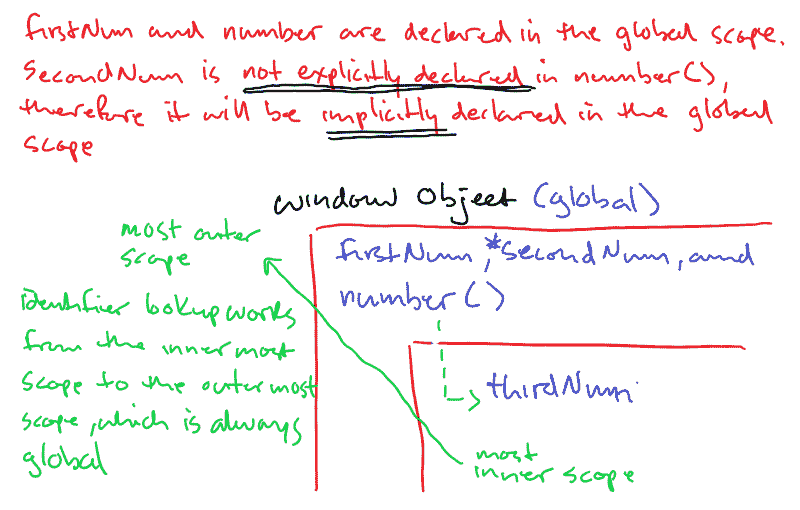 firstNum and number are declared in the global scope.
SecondNum is not explicitly declared in number(),
therefore it will be implicitly declared in the global
scope
window Object (global)
most outer
scope
firstNum, *secondNum, and
number()
identifier lookup works
from the inner most
scope to the outermost
scope, which is always
global
thirdNum
most
inner scope